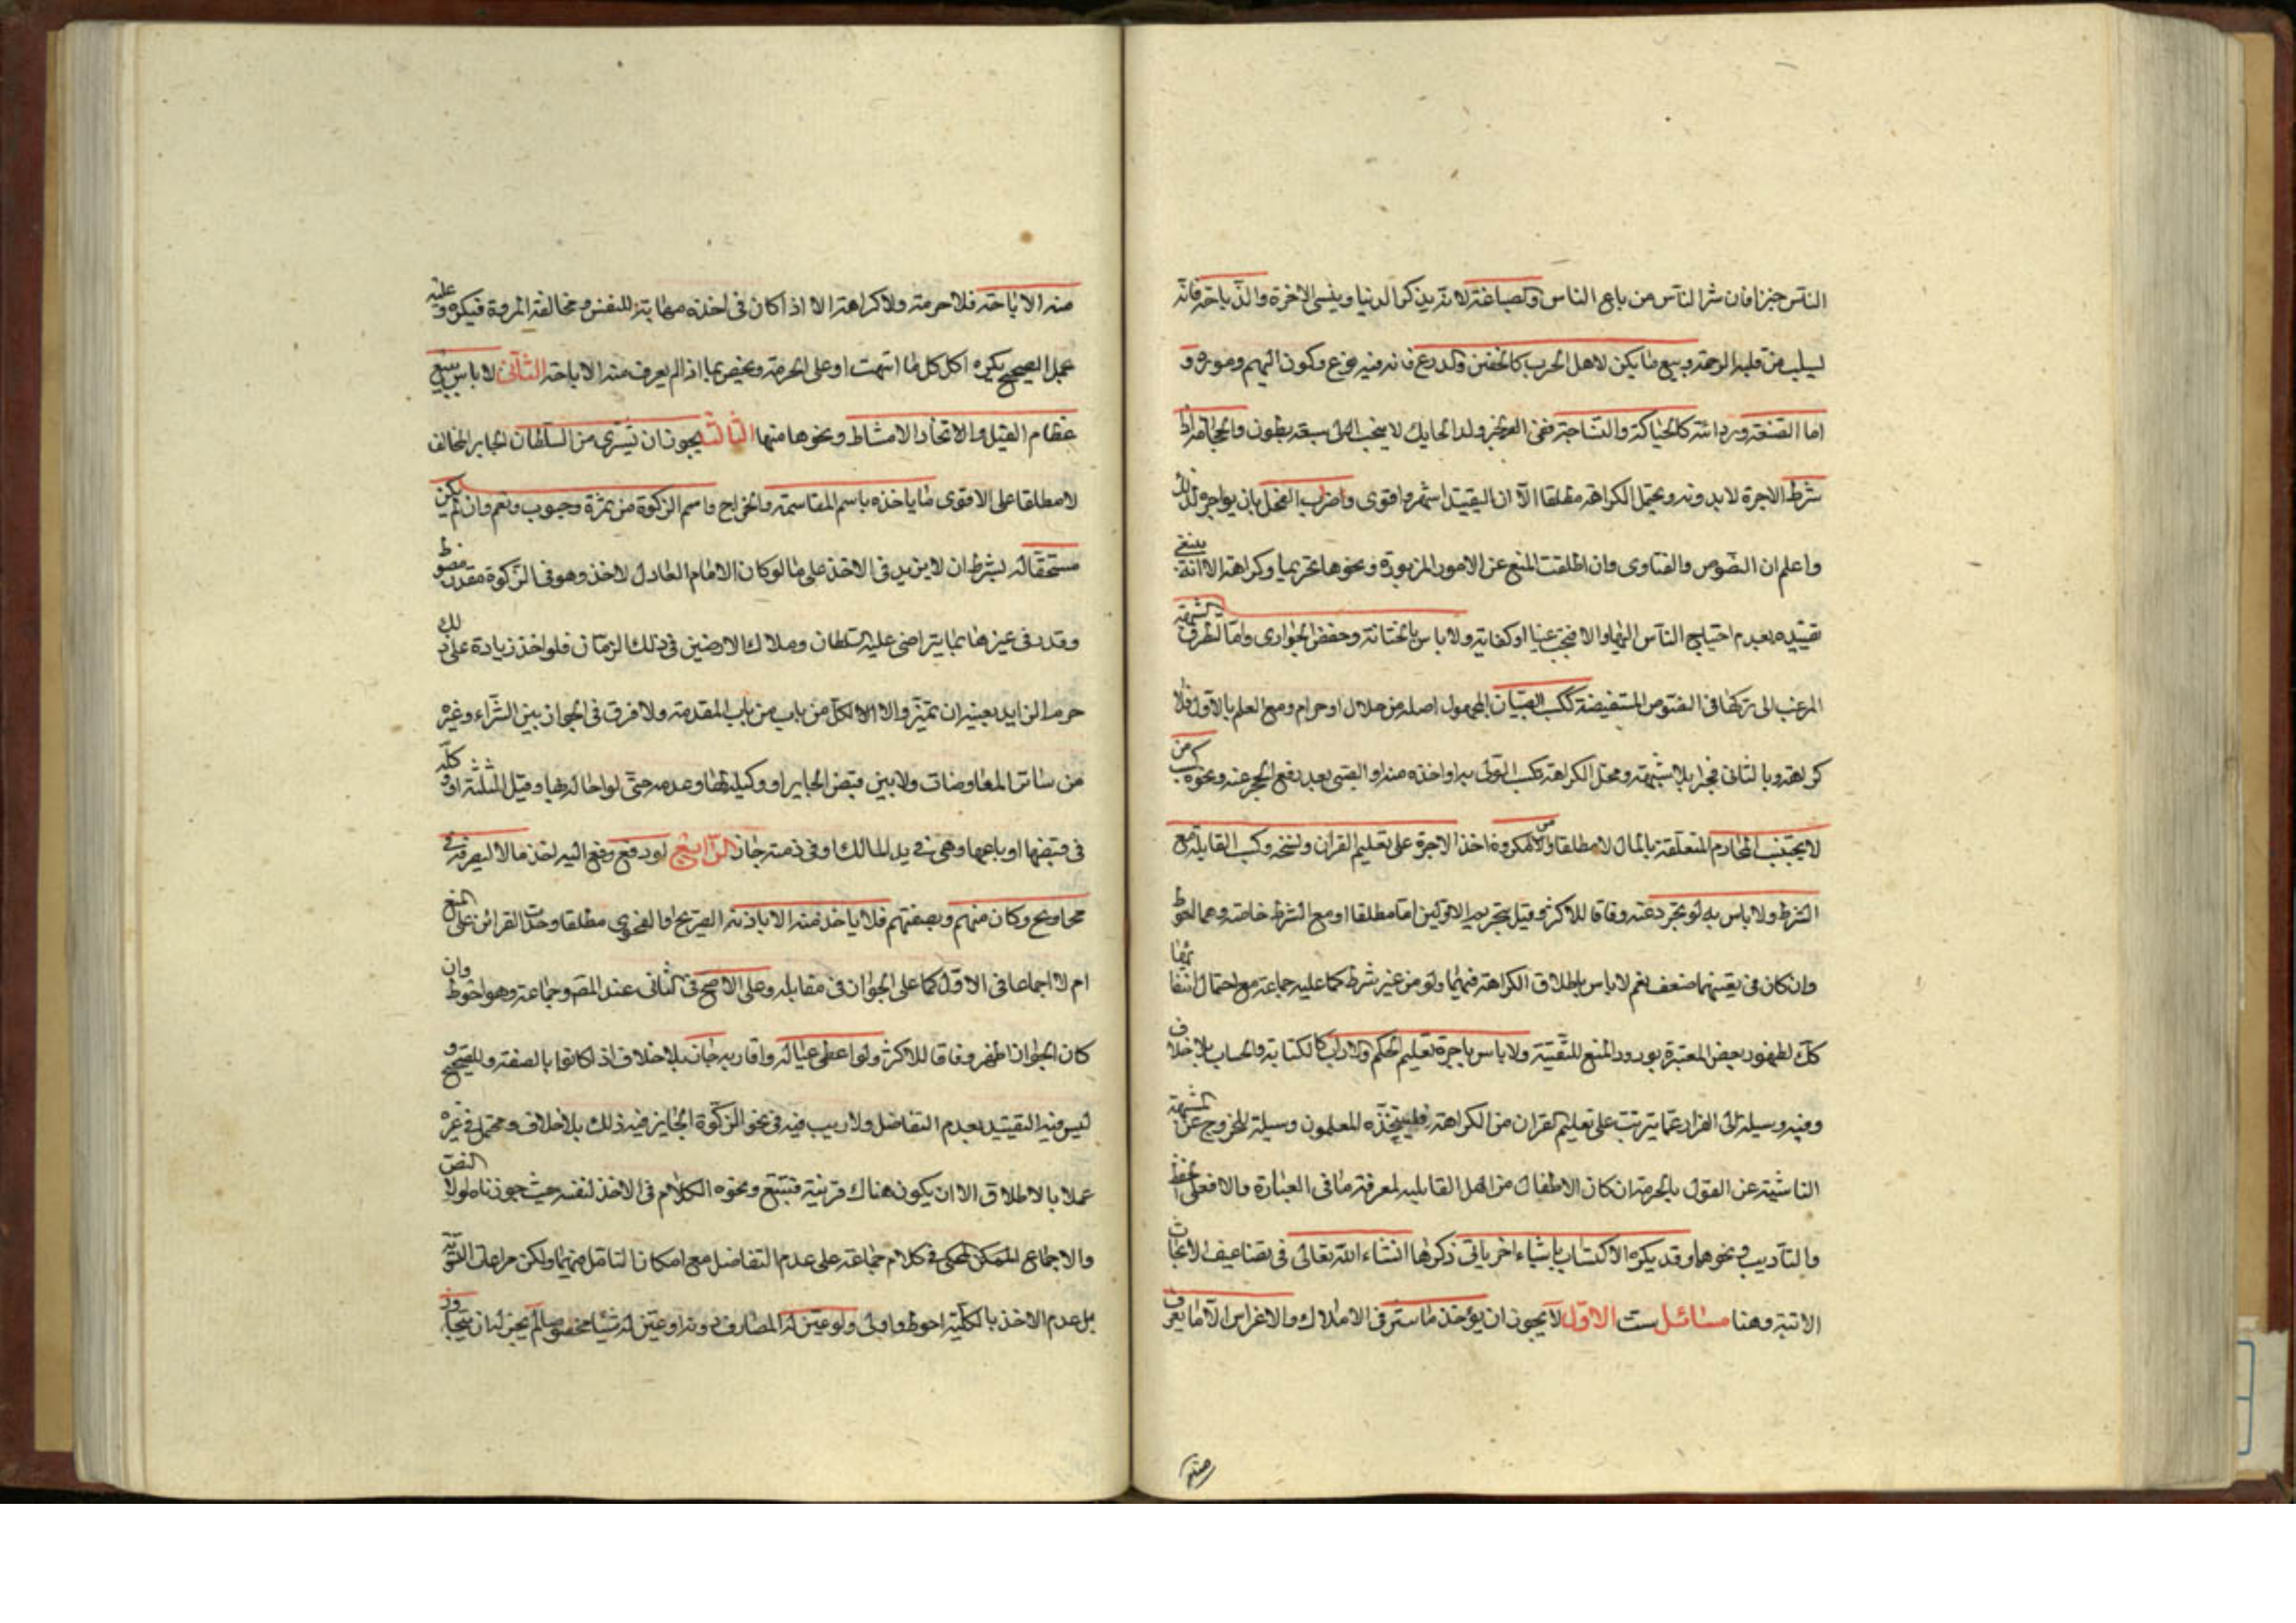 الناس خيرا فان شر الناس من باع الناس وكصياغته لانه يذكر الدنيا وينسى الاخرة والذباحة فانه
ليسلب من قلبه الرحمة وبيع ما يكن لاهل الحرب كالخفين والدرع فانه فزع وكون
اما الصنعته ورداءته كالحياكة والنساجة ففي الخبر ولد الحايك لا ينجب الى سبعة بطون والحجامة اذا
شرط الاجرة لا بدونه ويحتمل الكراهة مطلقا الا ان التقييد اشهر واقوى واضراب الفحل بان يواجره لذلك
واعلم ان النصوص والفتاوى وان اطلقت المنع عن الامور المزبورة ونحوها تحريما وكراهة الا انه ينبغي
تقييده بعدم احتياج الناس اليها والا فيجب عينا او كفاية ولا باس بالختانة وخفض الجوارى واما لطرق الشبهة
المرغب الى تركها فى النصوص المستفيضة ككسب الصبيان المجهول اصله من حلال او حرام ومع العلم بالاول فلا
كراهة وبالثانى فيحرم بلا شبهة ومحل الكراهة تكسب الولى به او اخذه منه او الصبى بعد رفع الحجر عنه ونحوه كسب من
لا يجتنب المحارم المتعلقة بالمال لا مطلقا ومن المكروه اخذ الاجرة على تعليم القران ونسخه وكسب القابلة مع
الشرط ولا باس به لو تجرد عنه وفاقا للاكثر وقيل بتحريم الاولين اما مطلقا او مع الشرط خاصة وهما احوط
وان كان فى تعينهما ضعف نعم لا باس باطلاق الكراهة فيهما ولو من غير شرط كما عليه جماعة مع احتمال انتفائها
كك لظهور بعض المعتبرة بورود المنع للتقية ولا باس باجرة تعليم الحكم والاداب كالكتابة والحساب بلا خلاف
وفيه وسيلة الى الفرار عما يترتب على تعليم القران من الكراهة فليتخذه المعلمون وسيلة للخروج عن الشبهة
الناشئة عن القول بالحرمة ان كان الاطفال من اهل القابلية لمعرفة ما فى العبارة والا فعلى الحفظ
والتاديب ونحوهما وقد يكره الاكتساب باشياء اخر ياتى ذكرها انشاء الله تعالى فى تضاعيف الابحاث
الاتية وهنا مسائل ست الاول لا يجوز ان يؤخذ ما ينثر فى الاملاك والاعراس الا ما يعرف
منه الاباحة فلا حرمة ولا كراهة الا اذا كان فى اخذه مهابة للنفس ومخالفة المروة فيكره وعليه
يحمل الصحيح يكره اكل كل ما انتهب او على الحرمة ويخص بما اذا لم يعرف منه الاباحة الثانى لا باس ببيع
عظام الفيل والاتخاذ الامشاط ونحوها منها الثالث يجوز ان يشترى من السلطان الجابر المخالف
لا مطلقا على الاقوى ما ياخذه باسم المقاسمة والخراج واسم الزكوة من ثمرة وحبوب ونعم وان لم يكن
مستحقا له بشرط ان لا يزيد فى الاخذ على ما لو كان الامام العادل لاخذ وهو فى الزكوة مقدر مضبوط
وقدر فى غيرها بما يتراضى عليه السلطان وملاك الارضين فى ذلك الزمان فلو اخذ زيادة على ذلك
حرم الزايد بعينه ان تميز والا الكل من باب من باب المقدمة ولا فرق فى الجواز بين الشراء وغيره
من سائر المعاوضات ولا بين قبض الجاير او وكيله لها وعدمه حتى لو احاله بها وقيل الثلثة او وكله
فى قبضها او باعها وهى فى يد المالك او فى ذمته جاز الرابع لو دفع دفع اليه احد مالا ليصرفه فى
محاويج وكان منهم وبصفتهم فلا ياخذ منه الا باذنه الصريح او الفحوى مطلقا وجدت القرائن على المنع
ام لا اجماعا فى الاول كما على الجواز فى مقابله وعلى الاصح فى الثانى عند المص وجماعة وهو احوط وان
كان الجواز اظهر وفاقا للاكثر ولو اعطى عياله واقاربه جاز بلا خلاف اذا كانوا بالصفة وللصحيح و
ليس فيه التقييد بعدم التفاضل ولا ريب فيه فى نحو الزكوة الجايز فيه ذلك بلا خلاف ومحتمل فى غيره
عملا بالاطلاق الا ان يكون هناك قرينة فتتبع ونحوه الكلام فى الاخذ لنفسه حيث جوزناه لولا النص
والاجماع الممكن المحكى فى كلام جماعة على عدم التفاضل مع امكان التامل فيهما ولكن مراعات التسوية
بل عدم الاخذ بالكلية احوط واولى ولو عين له المصارف دونه او عين له شيئا مخصوصا لم يجز له ان يتجاوز